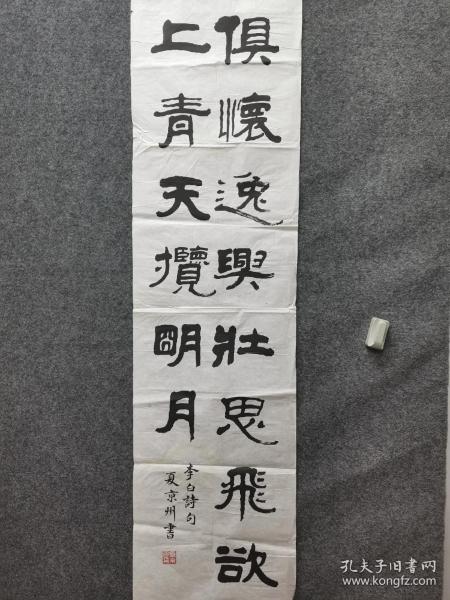 俱懷逸興壯思飛欲
上青天攬明月
李白詩句
夏京州書
孔夫子旧书网
www.kongfz.com